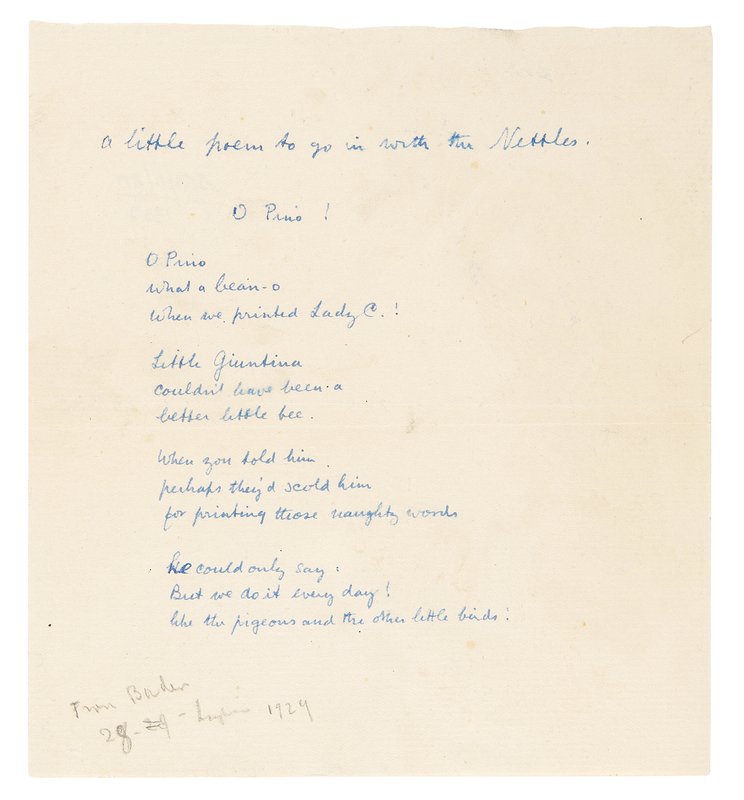 a little poem to go in with the Nettles.
O Pino!
O Pino
what a bean-o
When we printed Lady C.!
Little Giuntina
couldn't have been a
better little bee.
When you told him
perhaps they'd scold him
for printing those naughty words
He could only say:
But we do it every day!
like the pigeons and the other little birds!
From Baden
28-29- 1929